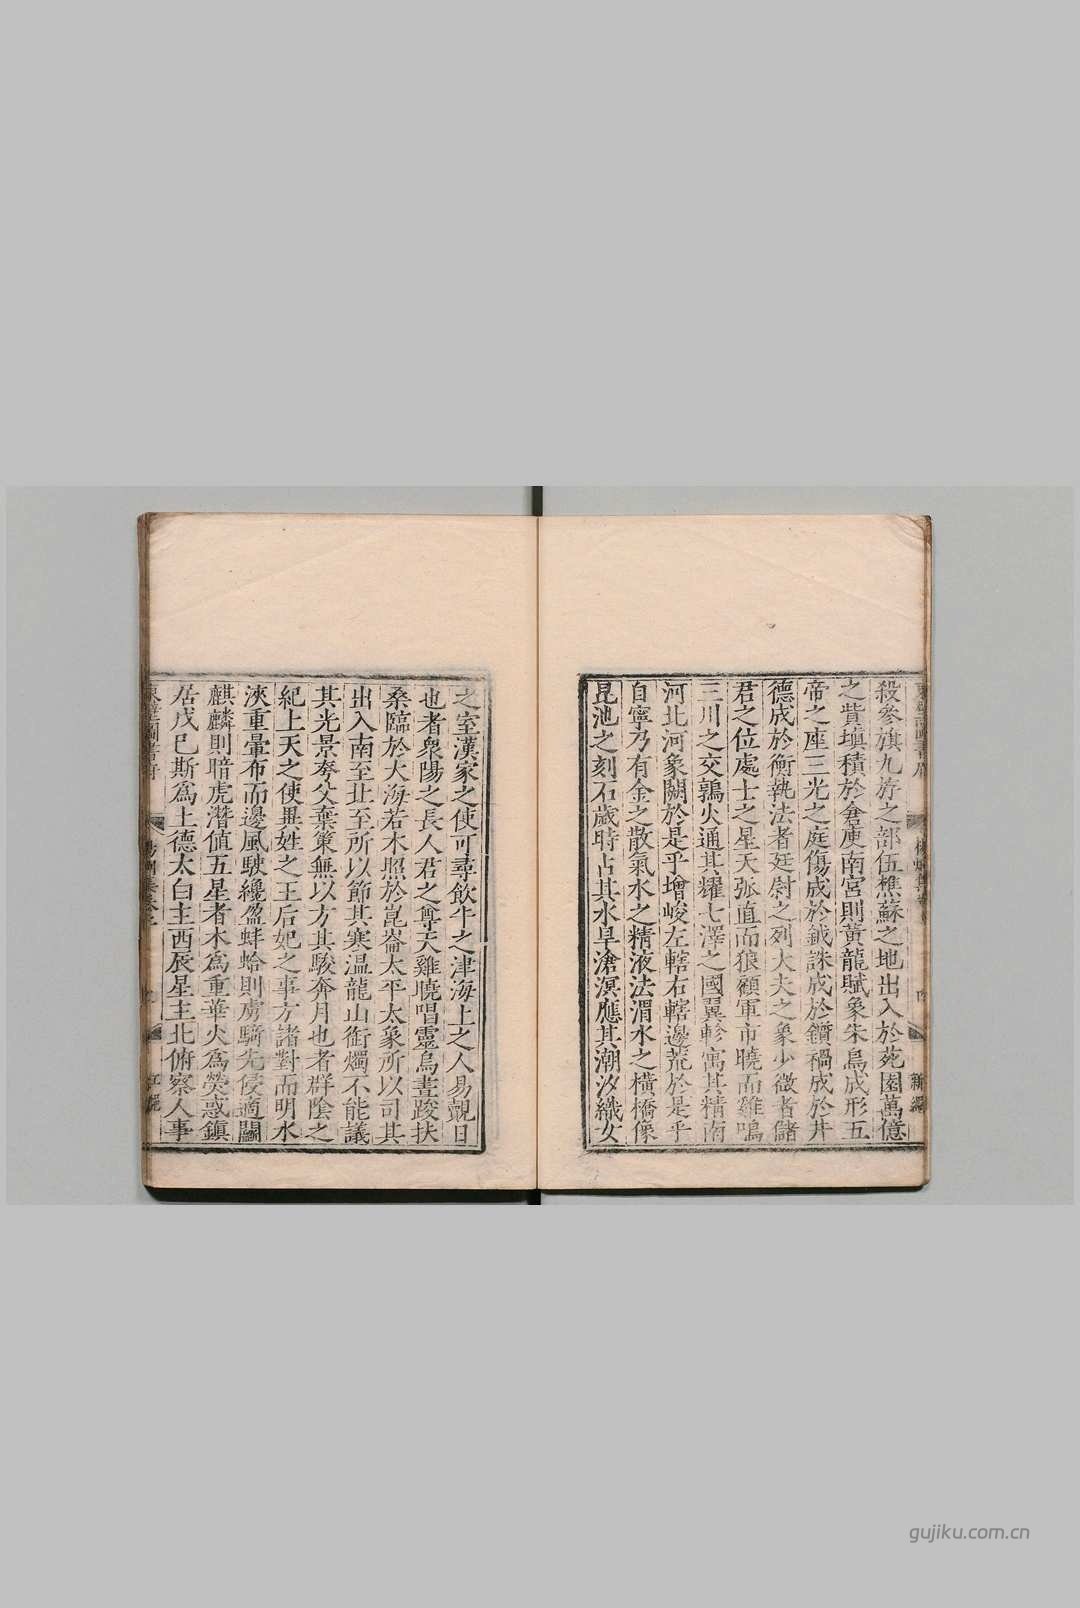 殺參旗九斿之部伍樵蘇之地出入於苑園萬億
之貲塡積於倉庾南宮則黃龍賦象朱鳥成形五
帝之座三光之庭傷成於鉞誅成於鑕禍成於井
德成於衡執法者廷尉之列大夫之象少微者儲
君之位處士之星天弧直而狼顧軍市曉而雞鳴
三川之交鶉火通其耀七澤之國翼軫寓其精南
河北河象闕於是乎增峻左轄右轄邊荒於是乎
自寧乃有金之散氣水之精液法渭水之橫橋像
昆池之刻石歲時占其水旱滄溟應其潮汐織女
之室漢家之使可尋飲牛之津海上之人易覿日
也者衆陽之長人君之尊天雞曉唱靈烏晝踆扶
桑臨於大海若木照於崑崙太平太象所以司其
出入南至北至所以節其寒温龍山銜燭不能議
其光景夸父棄策無以方其駿奔月也者群陰之
紀上天之使異姓之王后妃之事方諸對而明水
浹重暈布而邊風駛纔盈蚌蛤則虜騎先侵適鬭
麒麟則暗虎潛值五星者木為重華火為熒惑鎮
居戊巳斯為土德太白主西辰星主北俯察人事
東壁圖書府
gujiku.com.cn